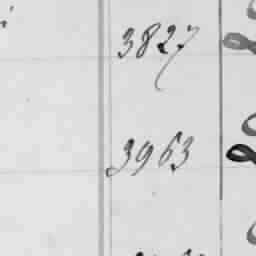 3827
3963